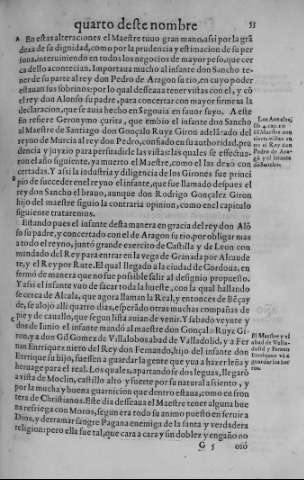 quarto deste nombre 53
A En estas alteraciones el Maestre tuuo gran mano, assi por la grã
deza de su dignidad, como por la prudencia y estimacion de su per
sona, interuiniendo en todos los negocios de mayor peso, que cer
ca dello acontecian. Importaua mucho al infante don Sancho te-
ner de su parte al rey don Pedro de Aragon su tio, en cuyo poder
estauan sus sobrinos: por lo qual desseaua tener vistas con el, y cõ
el rey don Alonso su padre, para concertar con mayor firmeza la
declaracion, que se auia hecho en Segouia en fauor suyo. A este
fin refiere Geronymo çurita, que embio el infante don Sancho
al Maestre de Santiago don Gonçalo Ruyz Giron adelãtado del
reyno de Murcia al rey don Pedro, confiado en su authoridad, pru
dencia y juyzio para persuadirle las vistas: las quales se effectua-
ron el año siguiente, ya muerto el Maestre, como el las dexò con
certadas. Y assi la industria y diligencia de los Girones fue princi
pio de succeder en el reyno el infante, que fue llamado despues el
rey don Sancho el brauo, aunque don Rodrigo Gonçalez Giron
hijo del maestre siguio la contraria opinion, como en el capitulo
siguiente trataremos.
Los Annales,
en el Rey don
Pedro de Ara-
Estando pues el infante desta manera en gracia del rey don Alõ
so su padre, y concertado con el de Aragon su tio, por obligar mas
a todo el reyno, juntò grande exercito de Castilla y de Leon con
mandado del Rey para entrar en la vega de Granada por Alcaude
te, y el Rey por Rute. El qual llegado a la ciudad de Cordoua, en-
fermò de manera que no fue possible salir al designio propuesto.
Y assi el infante vuo de sacar toda la hueste, con la qual hallando
se cerca de Alcala, que agora llaman la Real, y entonces de Bẽçay
de, se alojò alli quatro dias, esperando otras muchas compañas de
pie y de cauallo, que segun lista auian de venir. Y sabado veynte y
dos de Iunio el infante mandò al maestre don Gonçalo Ruyz Gi-
ron, y a don Gil Gomez de Villalobos abad de Valladolid, y a Fer
nan Enrriquez nieto del Rey don Fernando, hijo del infante don
Enrique su hijo, fuessen a guardar la gente que yua a hazer leña y
heruage para el real. Los quales, apartando se dos leguas, llegarõ
a vista de Moclin, castillo alto y fuerte por su natural assiento, y
por la mucha y buena guarnicion que dentro estaua, como en fron
tera de Christianos. Este dia desseaua el Maestre tener alguna bue
na refriega con Moros, segun era todo su animo puesto en seruir a
Dios, y derramar sangre Pagana enemiga de la santa y verdadera
religion: pero ella fue tal, que cara a cara y sin doblez y engaño no
El Maestre y el
abad de Valla-
dolid y Fernan
Enrriquez vã a
guardar los her
G 5 osò